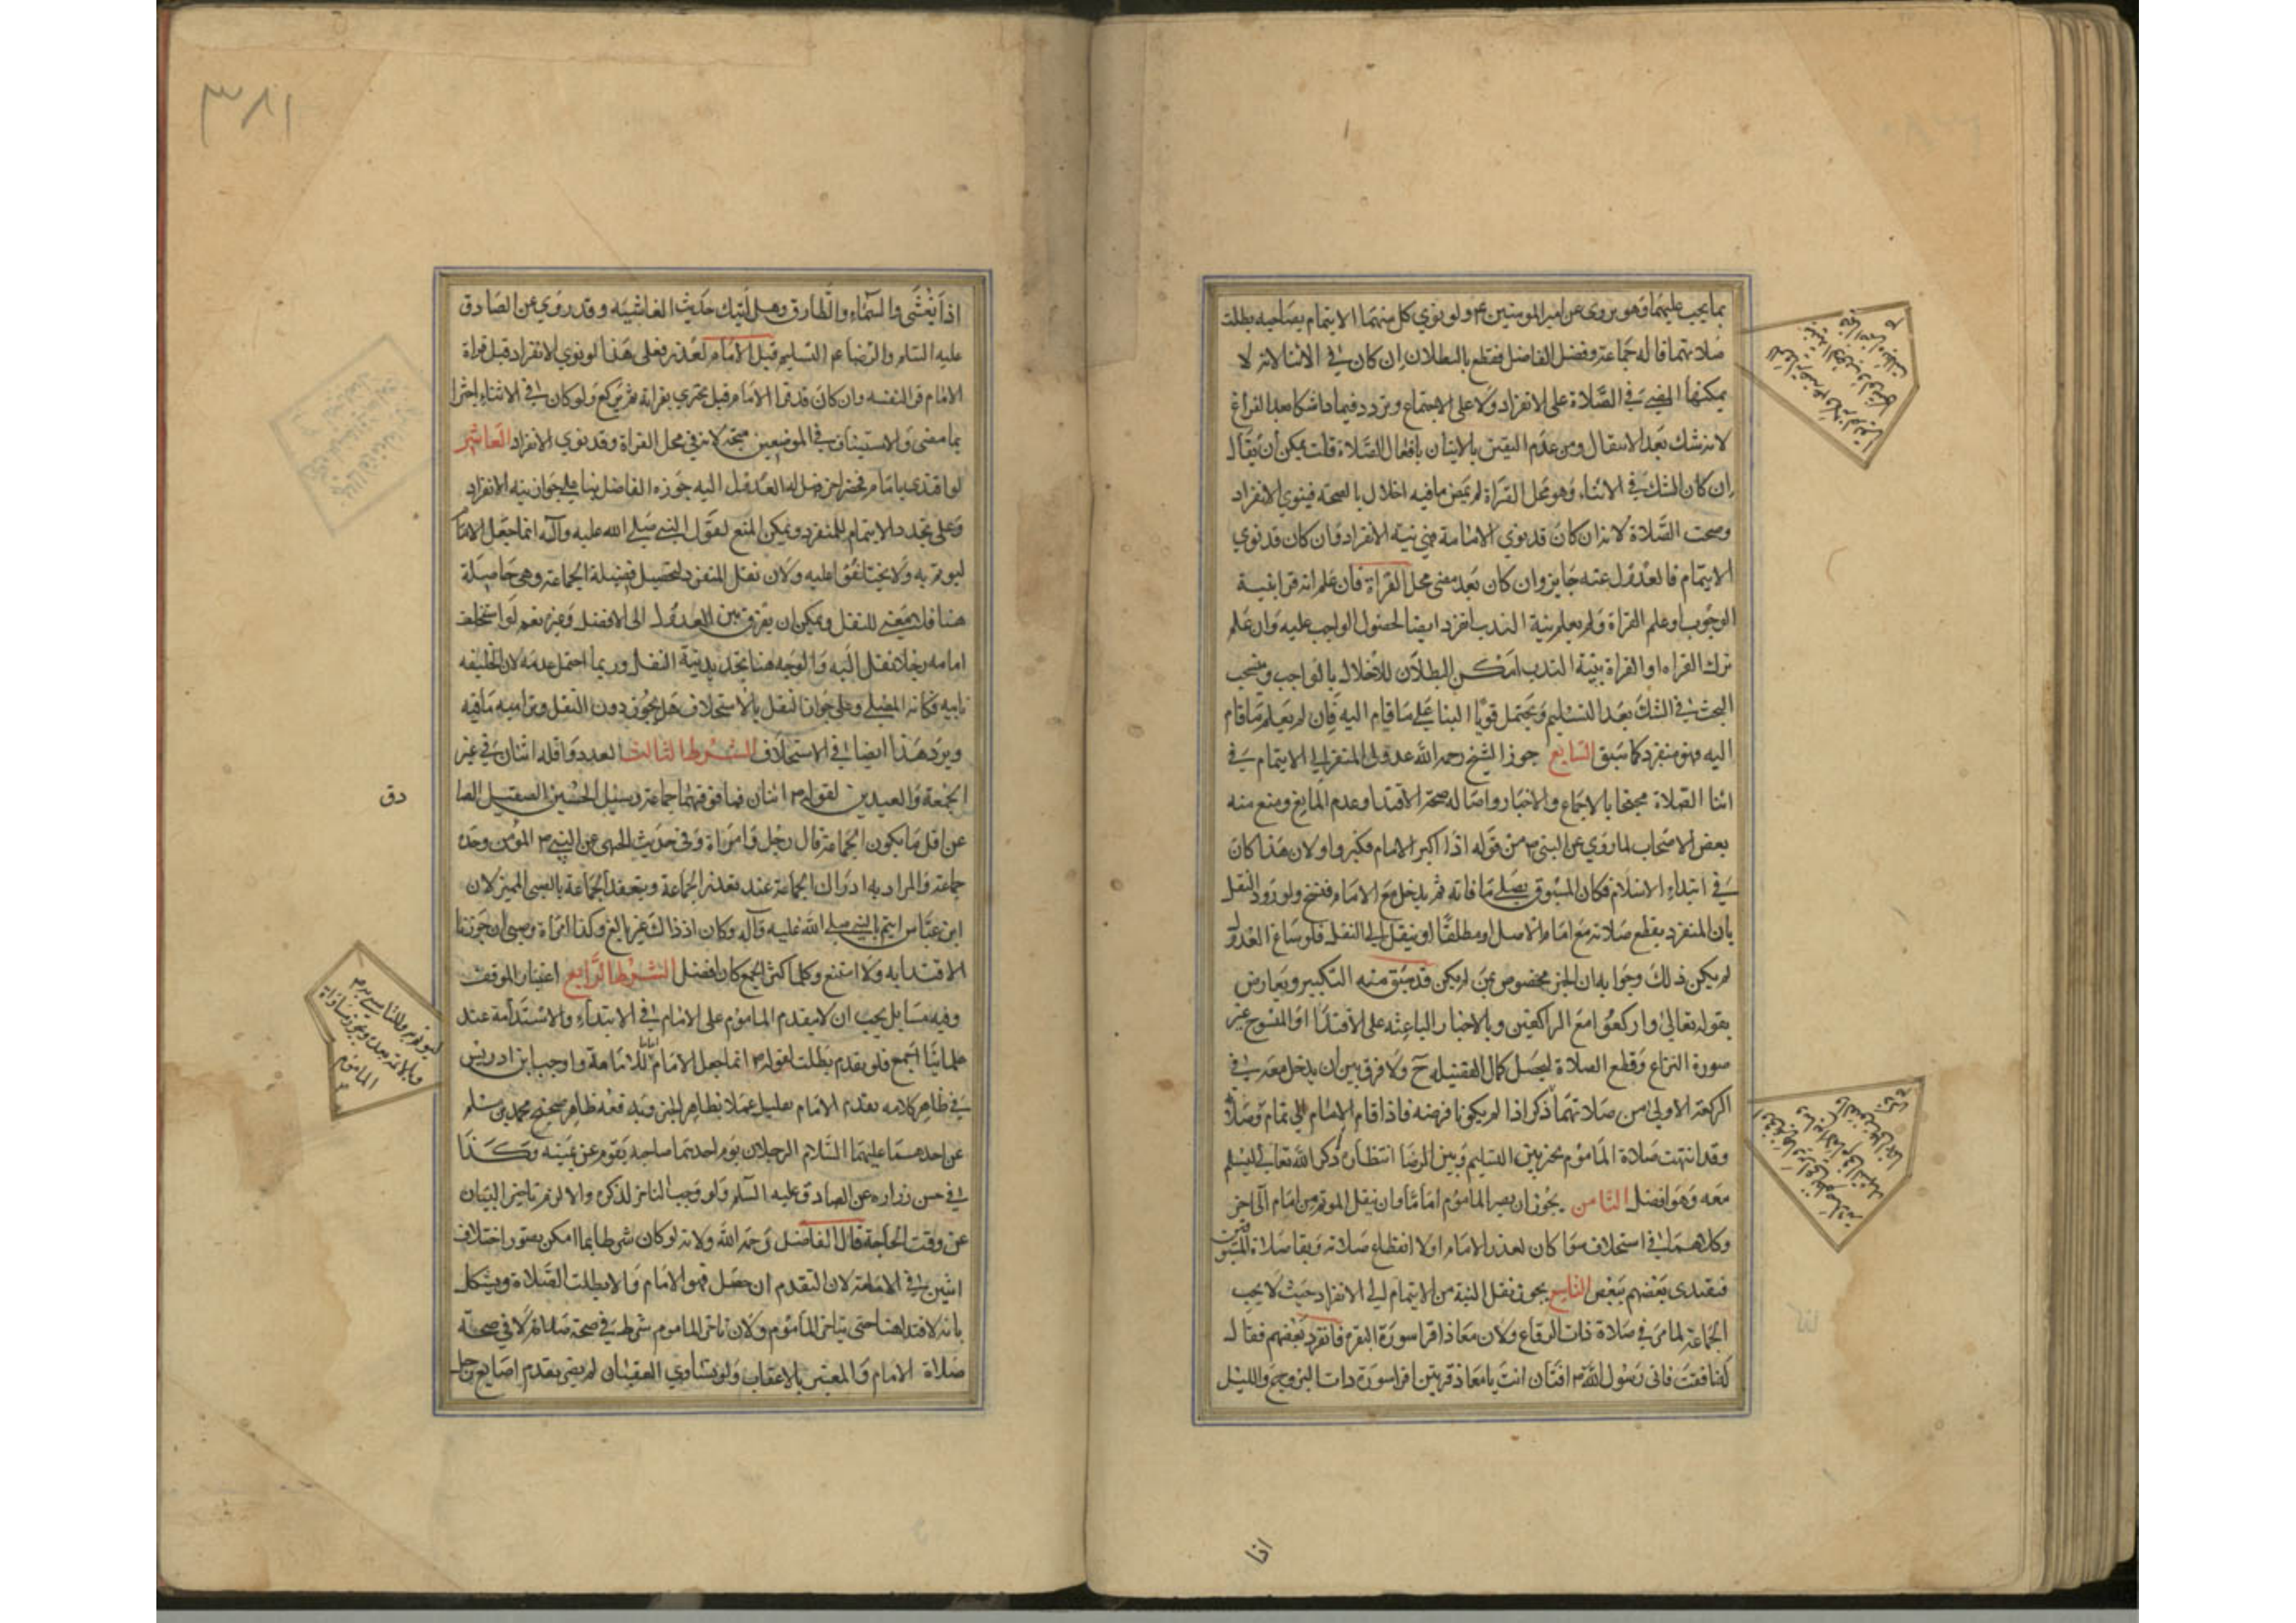 بما يجب عليهما وهو يروى عن امير المومنين ع ولو نوي كل منهما الايتمام بصاحبه بطلت
صلاتهما قاله جماعة وفصل الفاضل فقطع بالبطلان ان كان في الاثنا لانه لا
يمكنها المضي في الصلاة على الانفراد ولا على الاجتماع وتردد فيما اذا شكا بعد الفراغ
لانه شك بعد الانتقال ومن عدم اليقين بالاتيان بافعال الصلاة قلت يمكن ان يقال
ان كان الشك في الاثناء وهو محل القراة لم يمض ما فيه اخلال بالصحة فينوي الانفراد
وصحت الصلاة لانه ان كان قد نوي الامامة فهي نية الانفراد وان كان قد نوي
الايتمام فالعدول عنه جايز وان كان بعد مضي محل القراة فان علم انه قرا بنية
الوجوب او علم القراة ولم يعلم نية الندب انفرد ايضا لحصول الواجب عليه وان علم
ترك القراه او القراة بنية الندب امكن البطلان للاخلال بالواجب وينسحب
البحث في الشك بعد التسليم ويحتمل قويا البنا على ما قام اليه فان لم يعلم ما قام
اليه فهو منفرد كما سبق السابع جوز الشيخ رحمه الله عدول المنفرد الي الايتمام في
اثنا الصلاة محتجا بالاجماع والاخبار واصالة صحة الاقتدا وعدم المانع ومنع منه
بعض الاصحاب لما روي عن النبي ص من قوله اذا كبر الامام فكبروا ولان هذا كان
في ابتداء الاسلام فكان المسبوق يصلي ما فاته ثم يدخل مع الامام فنسخ ولورود النقل
بان المنفرد يقطع صلاته مع امام الاصل او مطلقا او ينقل الي النفل فلو ساغ العدول
لم يكن ذلك وجوابه ان الخبر مخصوص بمن لم يكن قد سبق منه التكبير ويعارض
بقوله تعالى واركعوا مع الراكعين وبالاخبار الباعثه على الاقتدا او المنسوخ غير
صورة النزاع وقطع الصلاة ليحصل كمال الفضيله ح ولا فرق بين ان يدخل معه في
الركعة الاولى من صلاتهما
وقد انتهت صلاة الماموم تخير بين التسليم وبين الرضا انتظار ذكر الله تعالى ليسلم
معه وهو افضل الثامن يجوز ان يصير الماموم اماما وان ينقل الموتم من امام الى اخر
وكلاهما في استخلاف سوا كان لعذر الامام او لا انقطاع صلاته وبقا صلاة المسبوقين
فيقتدى بعضهم ببعض التاسع يجوز نقل النية من الايتمام الي الانفراد حيث لا يجب
الجماعة لما مر في صلاة ذات الرقاع ولان معاذا قرا سورة البقره فانفرد بعضهم فقال
له نافقت فاتى رسول الله ص افتان انت يا معاذ مرتين اقرا سورة ذات البروج والليل
اذا
٣٨١
اذا يغشى والسماء والطارق وهل اتيك حديث الغاشيه وقد روي عن الصادق
عليه السلم والرضا ع م التسليم قبل الامام لعذر فعلى هذا لو نوي الانفراد قبل قراة
الامام قرا لنفسه وان كان قد قرا الامام قبل يجتزي بقراءته فيركع ولو كان في الاثناء اجتزا
بما مضى والاستيناف في الموضعين متجه لانه في محل القراة وقد نوي الانفراد العاشر
لو اقتدى بامام فحضر اخر هل له العدول اليه جوزه الفاضل بنا على جواز نية الانفراد
وعلى تجدد الايتمام للمنفرد ويمكن المنع لقول النبي صلى الله عليه وآله انما جعل الامام
ليوتم به ولا تختلفوا عليه ولان نقل المنفرد لتحصيل فضيلة الجماعة وهي حاصلة
هنا فلا معنى للنقل ويمكن ان يفرق بين العدول الى الافضل وغيره نعم لو استخلف
امامه رجلا نقل اليه والوجه هنا تجديد نية النقل وربما احتمل عدمه لان الخليفه
نايبه فكانه المصلي وعلى جواز النقل بالاستخلاف هل يجوز دون النقل وتراميه ما فيه
ويرد هذا ايضا في الاستخلاف الشرط الثالث العدد واقله اثنان في غير
الجمعة والعيدين لقوله ص اثنان فما فوقهما جماعة وسئل الحسين الصقيل الصا
دق
عن اقل ما يكون الجماعة قال رجل وامراة وفي حديث الجهني عن النبي ص المؤمن وحده
جماعة والمراد به ادراك الجماعة عند تعذر الجماعة وينعقد الجماعة بالصبي المميز لان
ابن عباس ايتم بالنبي صلى الله عليه وآله وكان اذ ذاك غير بالغ وكذا امراة وصبي ان جوزنا
الاقتدا به ولا امتنع وكلما كثر الجمع كان افضل الشرط الرابع اعتبار الموقف
وفيه مسايل يجب ان لا يتقدم الماموم على الامام في الابتداء والاستدامة عند
علمائنا اجمع فلو تقدم بطلت لقوله ص انما جعل الامام اماما واوجب ابن ادريس
في ظاهر كلامه تقدم الامام بقليل عملا بظاهر الخبر ويدفعه ظاهر صحيح محمد بن مسلم
عن احدهما عليهما السلام الرجلان يؤم احدهما صاحبه يقوم عن يمينه وكذا
في حسن زراره عن الصادق عليه السلم ولو وجب التاخر لذكره والا لزم تاخير البيان
عن وقت الحاجة قال الفاضل رحمه الله ولانه لو كان شرطا لما امكن تصور اختلاف
اثنين في الامامة لان التقدم ان حصل فهو الامام والا بطلت الصلاة ويشكل
بانه لا اقتدا هنا حتى يتاخر الماموم ولان تاخر الماموم شرط في صحة صلاته لا في صحة
صلاة الامام والمعتبر بالاعقاب ولو تساوي العقبان لم يضر تقدم اصابع رجل